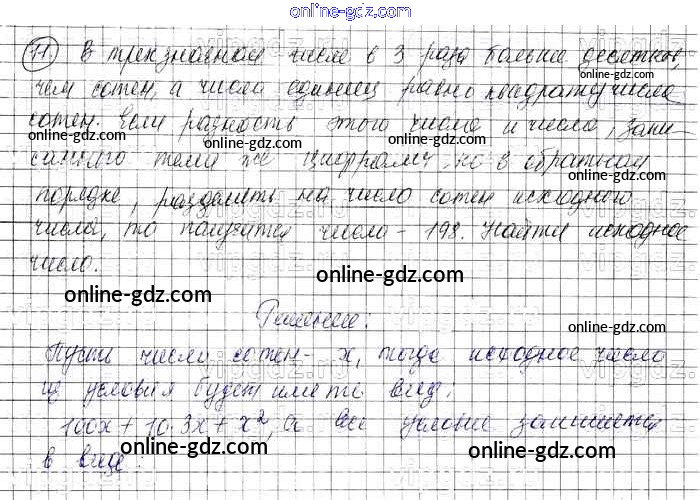 online-gdz.com
11 В трехзначном числе в 3 раза больше десятков,
чем сотен, а число единиц равно квадрату числа
сотен. Если разность этого числа и числа, запи-
санного теми же цифрами, но в обратном
порядке, разделить на число сотен исходного
числа, то получится число -198. Найти исходное
число.
online-gdz.com
online-gdz.com
Решение:
online-gdz.com
Пусть число сотен - x, тогда исходное число
из условия будет иметь вид:
100x + 10·3x + x², а все условие запишется
в виде:
online-gdz.com
online-gdz.com